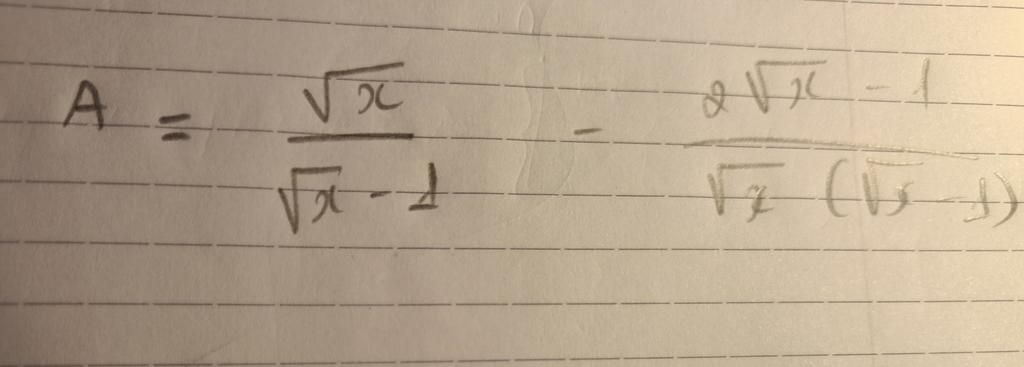 A = \frac{\sqrt{x}}{\sqrt{x} - 1} - \frac{2\sqrt{x} - 1}{\sqrt{x} (\sqrt{x} - 1)}